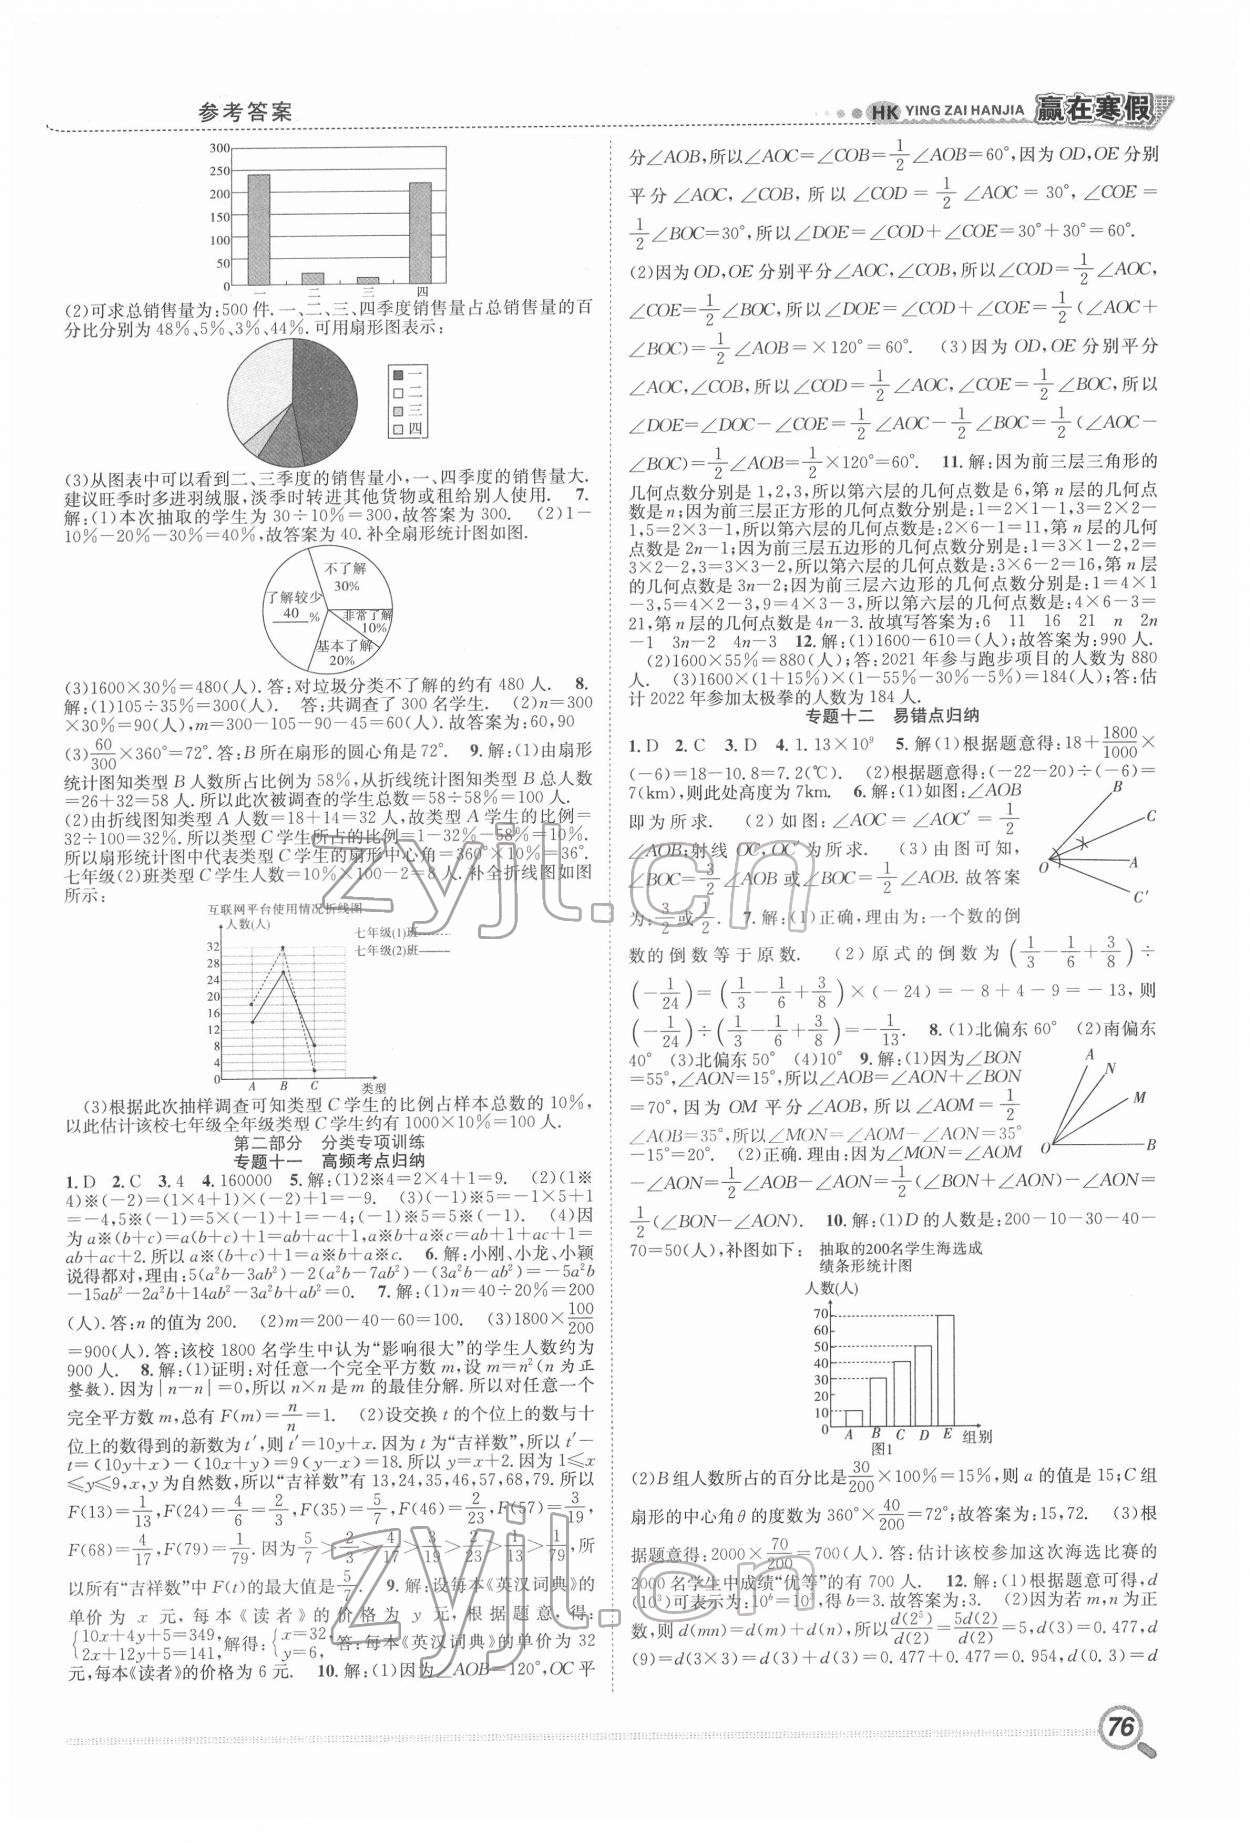 参考答案
HK YING ZAI HANJIA 赢在寒假
300
250
200
150
100
50
0
一 二 三 四
(2)可求总销售量为:500 件.一、二、三、四季度销售量占总销售量的百
分比分别为 48%、5%、3%、44%.可用扇形图表示:
一
二
三
四
(3)从图表中可以看到二、三季度的销售量小,一、四季度的销售量大.
建议旺季时多进羽绒服,淡季时转进其他货物或租给别人使用. 7.
解:(1)本次抽取的学生为 30÷10%=300,故答案为 300. (2)1-
10%-20%-30%=40%,故答案为 40.补全扇形统计图如图.
不了解
30%
了解较少
40 %
非常了解
10%
基本了解
20%
(3)1600×30%=480(人).答:对垃圾分类不了解的约有 480 人. 8.
解:(1)105÷35%=300(人). 答:共调查了 300 名学生. (2)n=300
×30%=90(人),m=300-105-90-45=60(人).故答案为:60,90
(3)60/300×360°=72°.答:B 所在扇形的圆心角是 72°. 9.解:(1)由扇形
统计图知类型 B 人数所占比例为 58%,从折线统计图知类型 B 总人数
=26+32=58 人.所以此次被调查的学生总数=58÷58%=100 人.
(2)由折线图知类型 A 人数=18+14=32 人,故类型 A 学生的比例=
32÷100=32%.所以类型 C 学生所占的比例=1-32%-58%=10%.
所以扇形统计图中代表类型 C 学生的扇形中心角=360°×10%=36°.
七年级(2)班类型 C 学生人数=10%×100-2=8 人.补全折线图如图
所示:
互联网平台使用情况折线图
人数(人)
七年级(1)班
七年级(2)班
32
28
24
20
16
12
8
4
0
A B C 类型
(3)根据此次抽样调查可知类型 C 学生的比例占样本总数的 10%,
以此估计该校七年级全年级类型 C 学生约有 1000×10%=100 人.
第二部分 分类专项训练
专题十一 高频考点归纳
1.D 2.C 3.4 4.160000 5.解:(1)2※4=2×4+1=9. (2)(1※
4)※(-2)=(1×4+1)×(-2)+1=-9. (3)(-1)※5=-1×5+1
=-4,5※(-1)=5×(-1)+1=-4;(-1)※5=5※(-1). (4)因
为 a※(b+c)=a(b+c)+1=ab+ac+1,a※b+a※c=ab+1+ac+1=
ab+ac+2.所以 a※(b+c)+1=a※b+a※c. 6.解:小刚、小龙、小颖
说得都对,理由:5(a²b-3ab²)-2(a²b-7ab²)-(3a²b-ab²)=-5a²b
-15ab²-2a²b+14ab²-3a²b+ab²=0. 7.解:(1)n=40÷20%=200
(人).答:n 的值为 200. (2)m=200-40-60=100. (3)1800×100/200
=900(人).答:该校 1800 名学生中认为“影响很大”的学生人数约为
900 人. 8.解:(1)证明:对任意一个完全平方数 m,设 m=n²(n 为正
整数).因为|n-n|=0,所以 n×n 是 m 的最佳分解.所以对任意一个
完全平方数 m,总有 F(m)=n/n=1. (2)设交换 t 的个位上的数与十
位上的数得到的新数为 t′,则 t′=10y+x.因为 t 为“吉祥数”,所以 t′-
t=(10y+x)-(10x+y)=9(y-x)=18.所以 y=x+2.因为 1≤x
≤y≤9,x,y 为自然数,所以“吉祥数”有 13,24,35,46,57,68,79.所以
F(13)=1/13,F(24)=4/6=2/3,F(35)=5/7,F(46)=2/23,F(57)=3/19,
F(68)=4/17,F(79)=1/79.因为5/7>2/3>4/17>3/19>2/23>1/13>1/79,所
以所有“吉祥数”中 F(t)的最大值是5/7. 9.解:设每本《英汉词典》的
单价为 x 元,每本《读者》的价格为 y 元,根据题意,得:
{10x+4y+5=349, 2x+12y+5=141,解得:{x=32, y=6,答:每本《英汉词典》的单价为 32
元,每本《读者》的价格为 6 元. 10.解:(1)因为∠AOB=120°,OC 平
分∠AOB,所以∠AOC=∠COB=1/2∠AOB=60°,因为 OD,OE 分别
平分∠AOC,∠COB,所以∠COD=1/2∠AOC=30°,∠COE=
1/2∠BOC=30°,所以∠DOE=∠COD+∠COE=30°+30°=60°.
(2)因为 OD,OE 分别平分∠AOC,∠COB,所以∠COD=1/2∠AOC,
∠COE=1/2∠BOC,所以∠DOE=∠COD+∠COE=1/2(∠AOC+
∠BOC)=1/2∠AOB=×120°=60°. (3)因为 OD,OE 分别平分
∠AOC,∠COB,所以∠COD=1/2∠AOC,∠COE=1/2∠BOC,所以
∠DOE=∠DOC-∠COE=1/2∠AOC-1/2∠BOC=1/2(∠AOC-
∠BOC)=1/2∠AOB=1/2×120°=60°. 11.解:因为前三层三角形的
几何点数分别是 1,2,3,所以第六层的几何点数是 6,第 n 层的几何点
数是 n;因为前三层正方形的几何点数分别是:1=2×1-1,3=2×2-
1,5=2×3-1,所以第六层的几何点数是:2×6-1=11,第 n 层的几何
点数是 2n-1;因为前三层五边形的几何点数分别是:1=3×1-2,2=
3×2-2,3=3×3-2,所以第六层的几何点数是:3×6-2=16,第 n 层
的几何点数是 3n-2;因为前三层六边形的几何点数分别是:1=4×1
-3,5=4×2-3,9=4×3-3,所以第六层的几何点数是:4×6-3=
21,第 n 层的几何点数是 4n-3.故填写答案为:6 11 16 21 n 2n
-1 3n-2 4n-3 12.解:(1)1600-610=(人);故答案为:990 人.
(2)1600×55%=880(人);答:2021 年参与跑步项目的人数为 880
人. (3)1600×(1+15%)×(1-55%-30%-5%)=184(人);答:估
计 2022 年参加太极拳的人数为 184 人.
专题十二 易错点归纳
1.D 2.C 3.D 4.1.13×10⁹ 5.解(1)根据题意得:18+1800/1000×
(-6)=18-10.8=7.2(℃). (2)根据题意得:(-22-20)÷(-6)=
7(km),则此处高度为 7km. 6.解:(1)如图:∠AOB
即为所求. (2)如图:∠AOC=∠AOC′=1/2
∠AOB;射线 OC,OC′为所求. (3)由图可知,
∠BOC=3/2∠AOB 或∠BOC=1/2∠AOB.故答案
为:3/2或1/2. 7.解:(1)正确,理由为:一个数的倒
B
C
A
O
C′
数的倒数等于原数. (2)原式的倒数为(1/3-1/6+3/8)÷
(-1/24)=(1/3-1/6+3/8)×(-24)=-8+4-9=-13,则
(-1/24)÷(1/3-1/6+3/8)=-1/13. 8.(1)北偏东 60° (2)南偏东
40° (3)北偏东 50° (4)10° 9.解:(1)因为∠BON
=55°,∠AON=15°,所以∠AOB=∠AON+∠BON
=70°,因为 OM 平分∠AOB,所以∠AOM=1/2
∠AOB=35°,所以∠MON=∠AOM-∠AON=35°
-15°=20°. (2)正确.理由:因为∠MON=∠AOM
A
N
M
O B
-∠AON=1/2∠AOB-∠AON=1/2(∠BON+∠AON)-∠AON=
1/2(∠BON-∠AON). 10.解:(1)D 的人数是:200-10-30-40-
70=50(人),补图如下:
抽取的200名学生海选成
绩条形统计图
人数(人)
70
60
50
40
30
20
10
0
A B C D E 组别
图1
(2)B 组人数所占的百分比是30/200×100%=15%,则 a 的值是 15;C 组
扇形的中心角 θ 的度数为 360°×40/200=72°;故答案为:15,72. (3)根
据题意得:2000×70/200=700(人).答:估计该校参加这次海选比赛的
2000 名学生中成绩“优等”的有 700 人. 12.解:(1)根据题意可得,d
(10³)可表示为:10ᵇ=10³,得 b=3.故答案为:3. (2)因为若 m,n 为正
数,则 d(mn)=d(m)+d(n),所以d(2⁵)/d(2)=5d(2)/d(2)=5,d(3)=0.477,d
(9)=d(3×3)=d(3)+d(3)=0.477+0.477=0.954,d(0.3)=d
76
zyjl.cn
zyjl.cn